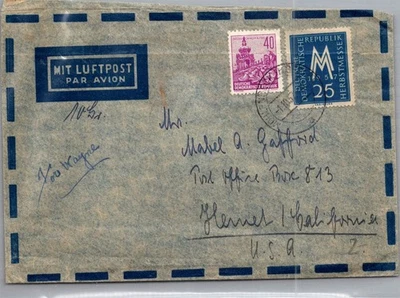 MIT LUFTPOST
PAR AVION
40
DEUTSCHE
DEMOKRATISCHE REPUBLIK
DEUTSCHE
DEMOKRATISCHE
REPUBLIK
HERBSTMESSE
25
Mr.
Mabel A. Gafford
Post Office Box 813
Hemet / California
U.S.A.